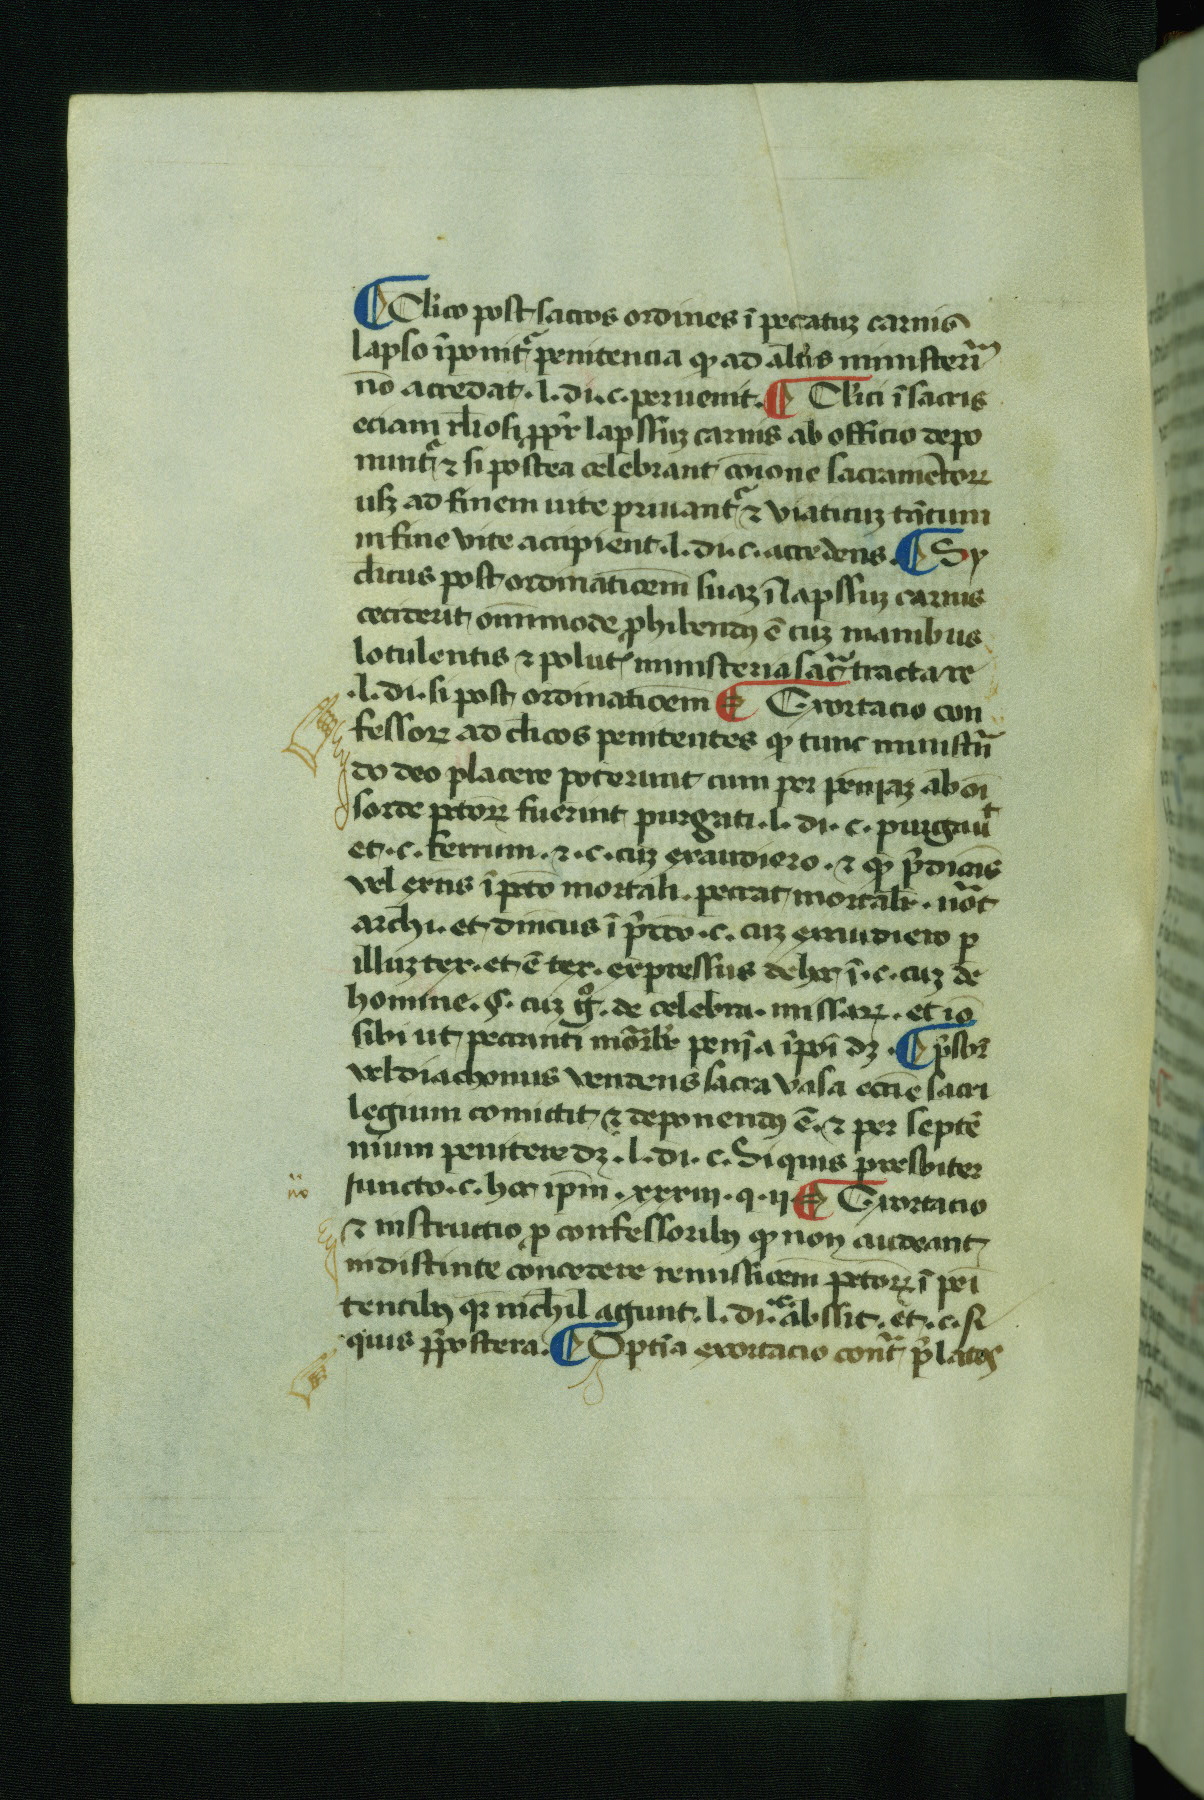 Clico post sacros ordines ī pecatuz carnis
lapso īponit᷑ penitencia qꝫ ad altis ministeriū
nō accedat. l. di. c. peruenit. ¶ Clici ī sacris
eciam rliosi ꝓpt̄ lapssuz carnis ab officio depo
nunt᷑ ⁊ si postea celebrant cōione sacramētoꝝ
usqꝫ ad finem uite priuant᷑ ⁊ viaticuz tm̄tum
in fine vite accipient. l. di. c. accedens. ¶ Sy
clicus post ordinaticem̄ suaz ī lapssuz carnis
ceciderit omīmode ꝓhibendꝰ ē cuz manibus
lotulentis ⁊ polut᷑ ministeria sac᷑ tractare
.l. di. si post ordinaticem̄ ¶ Exortacio con
fessoꝝ ad clicos penitentes qꝫ tunc ministrā
do deo placere poterunt cum per penīaz ab oī
sorde pctōꝝ fuerint purgati. l. di. c. purgaut
et. c. ferrum. ⁊. c. cuz exaudiero. ⁊ qꝫ p̄dicās
vel exn̄s ī pctō mortali. peccat mortalr̄. not᷑
archi. et dnīcus ī p̄ctō. c. cuz exaudiero ꝑ
illuz tex. et ē tex. expressus de hoc ī. c. cuz de
homine. §. cuz gͦ. de celebra. missaꝝ. et iō
sibi ut peccanti mōrlr̄ penīa īpōi dꝫ. ¶ p̄sbr̄
vel diachonus vendens sacra vasa ecclīe sacri
legium comictit ⁊ deponendꝰ ē. ⁊ per septē
nium penitere dꝫ. l. di. c. Si quis presbiter
iuncto. c. hoc ip̄m. xxxiii. q. ii. ¶ Exortacio
⁊ instructio ꝓ confessoribꝰ qꝫ non audeant
indistinte concedere remissicem̄ pctōꝝ ī peī
tentibꝰ qꝛ nichil agunt. l. di. c. abssit. et. c. si
quis p̄postera. ¶ Optīa exortacio cont᷑ p̄latos